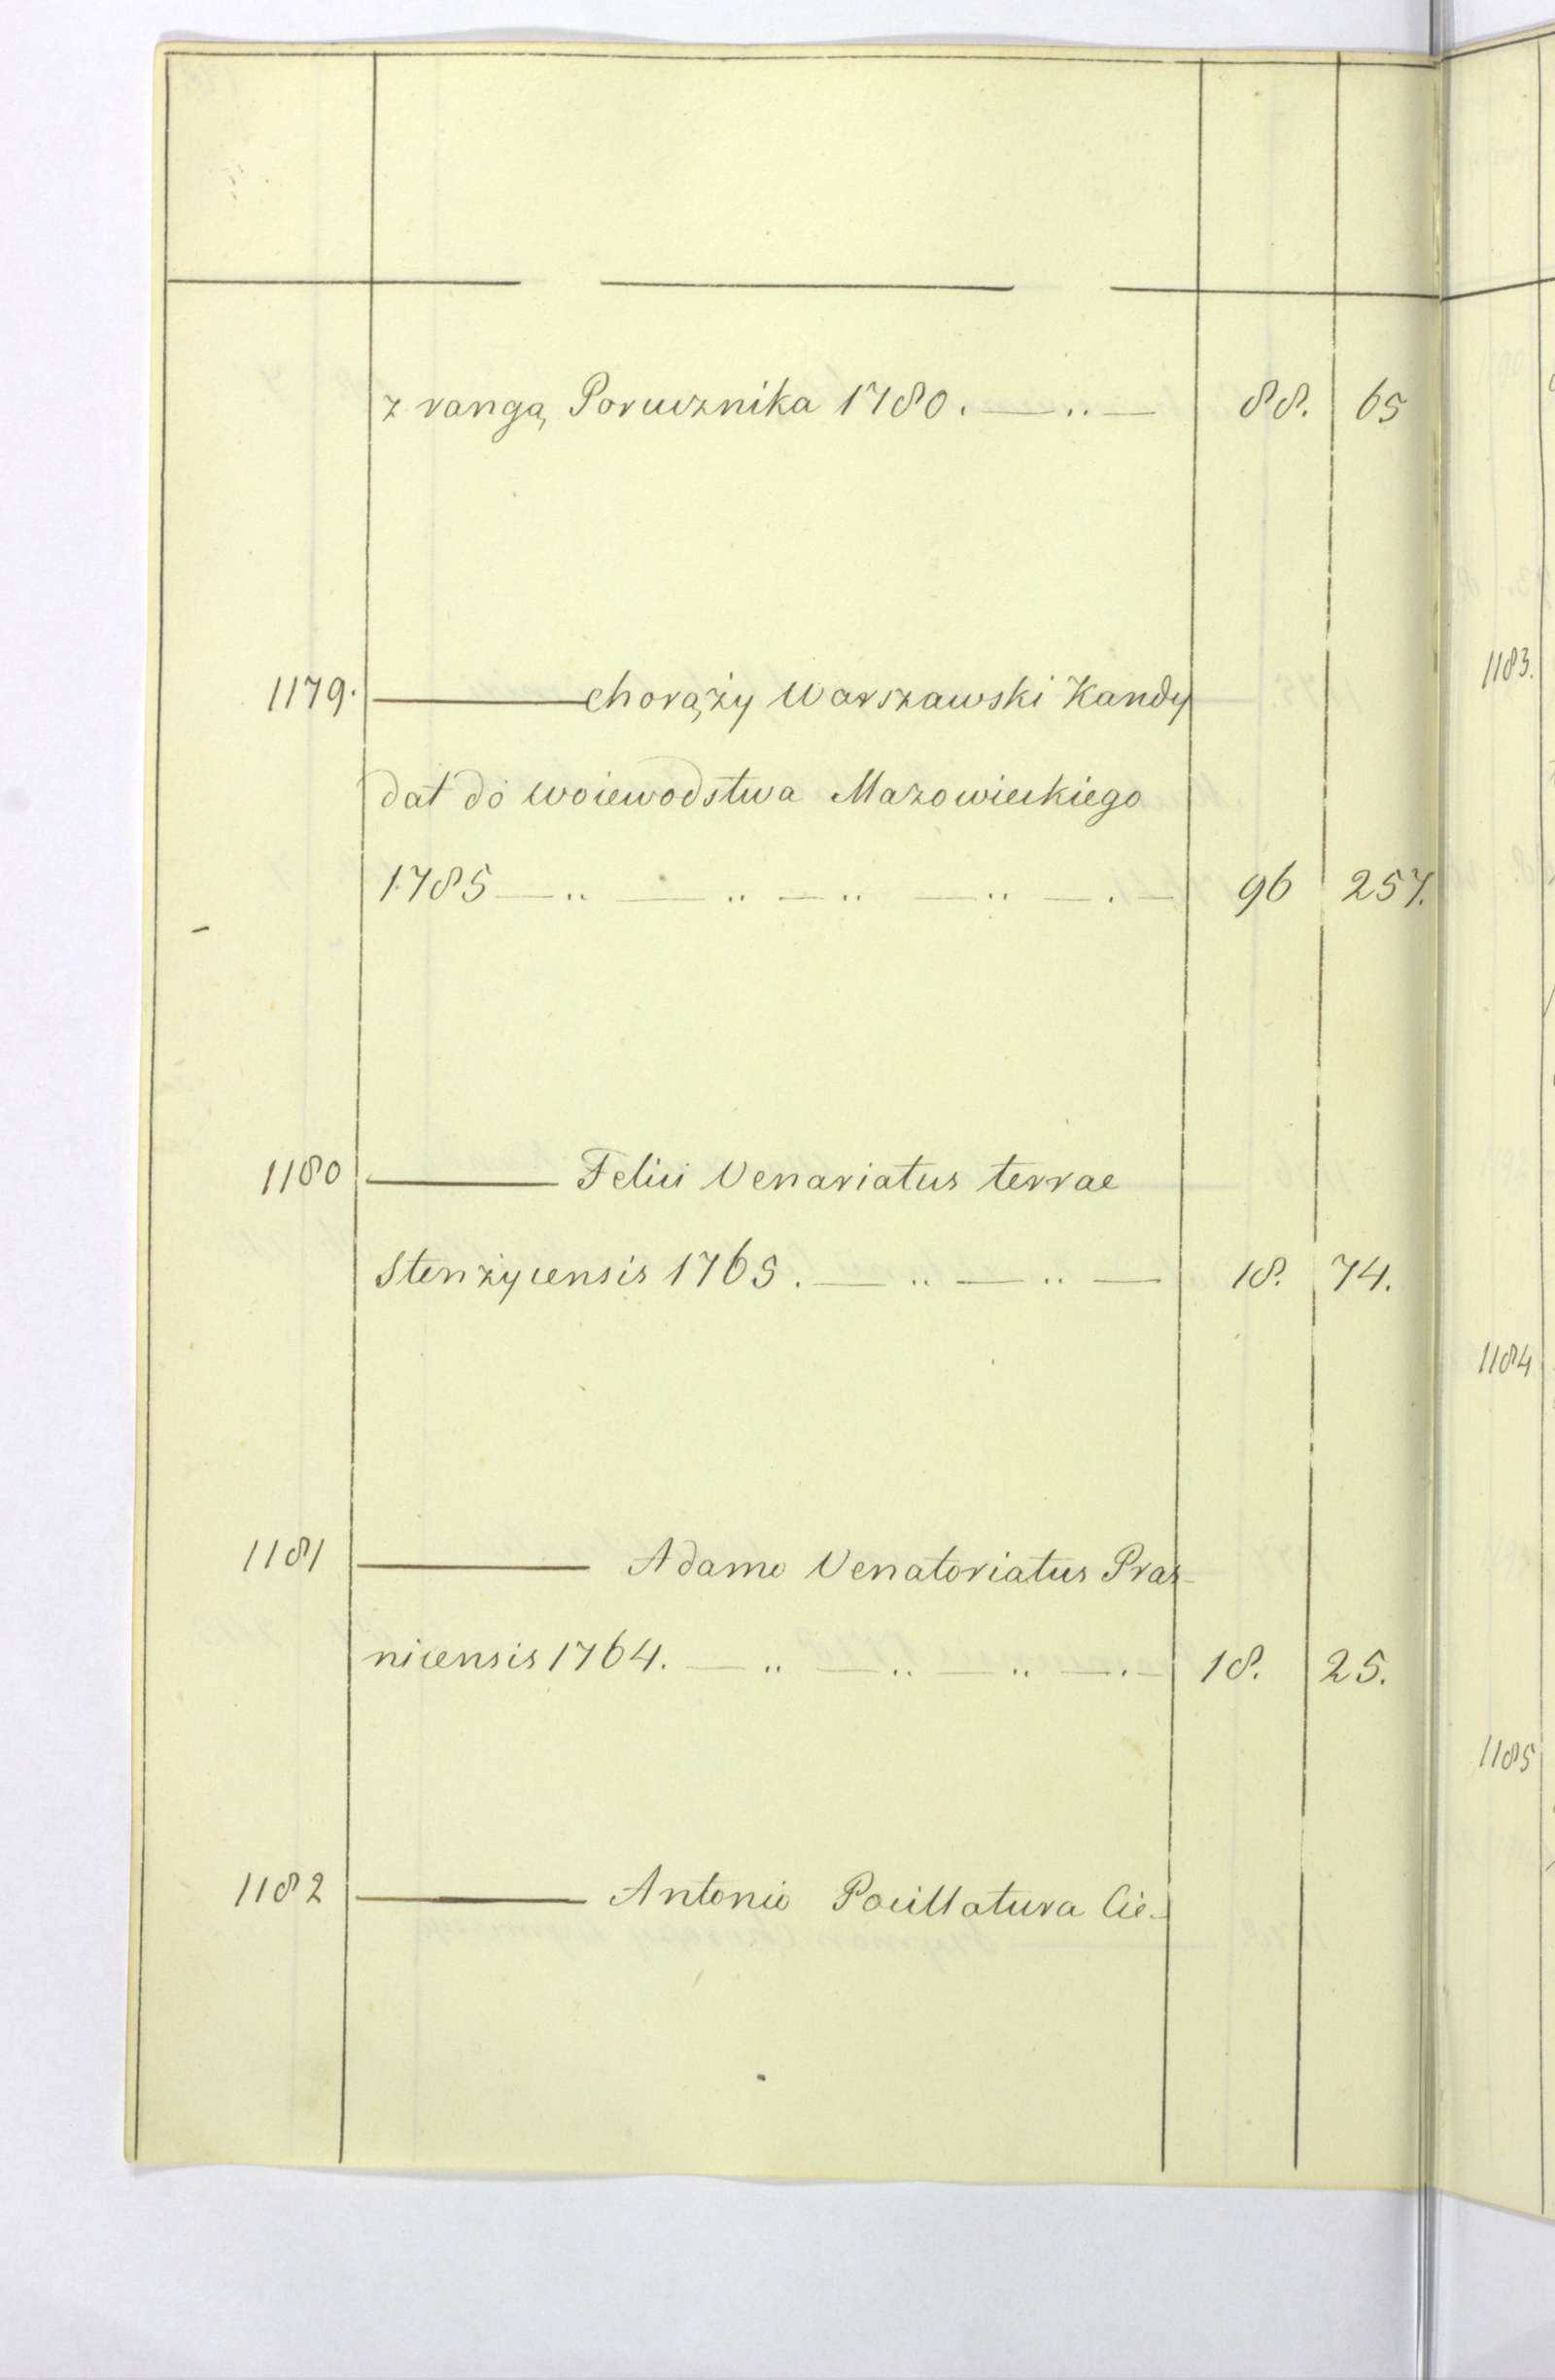 z rangą Porucznika 1780. — .. — 88. 65
1179. — chorąży Warszawski Kandy
dat do woiewodstwa Mazowieckiego
1785 — .. — .. — .. — .. — . — 96 257.
1180 — Felici Venariatus terrae
Stenżycensis 1765. — .. — .. — 18. 74.
1181 — Adamo Venatoriatus Pras-
nicensis 1764. — .. — .. — .. — . — 18. 25.
1182 — Antonio Pocillatura Cie-
1183.
1184
1185